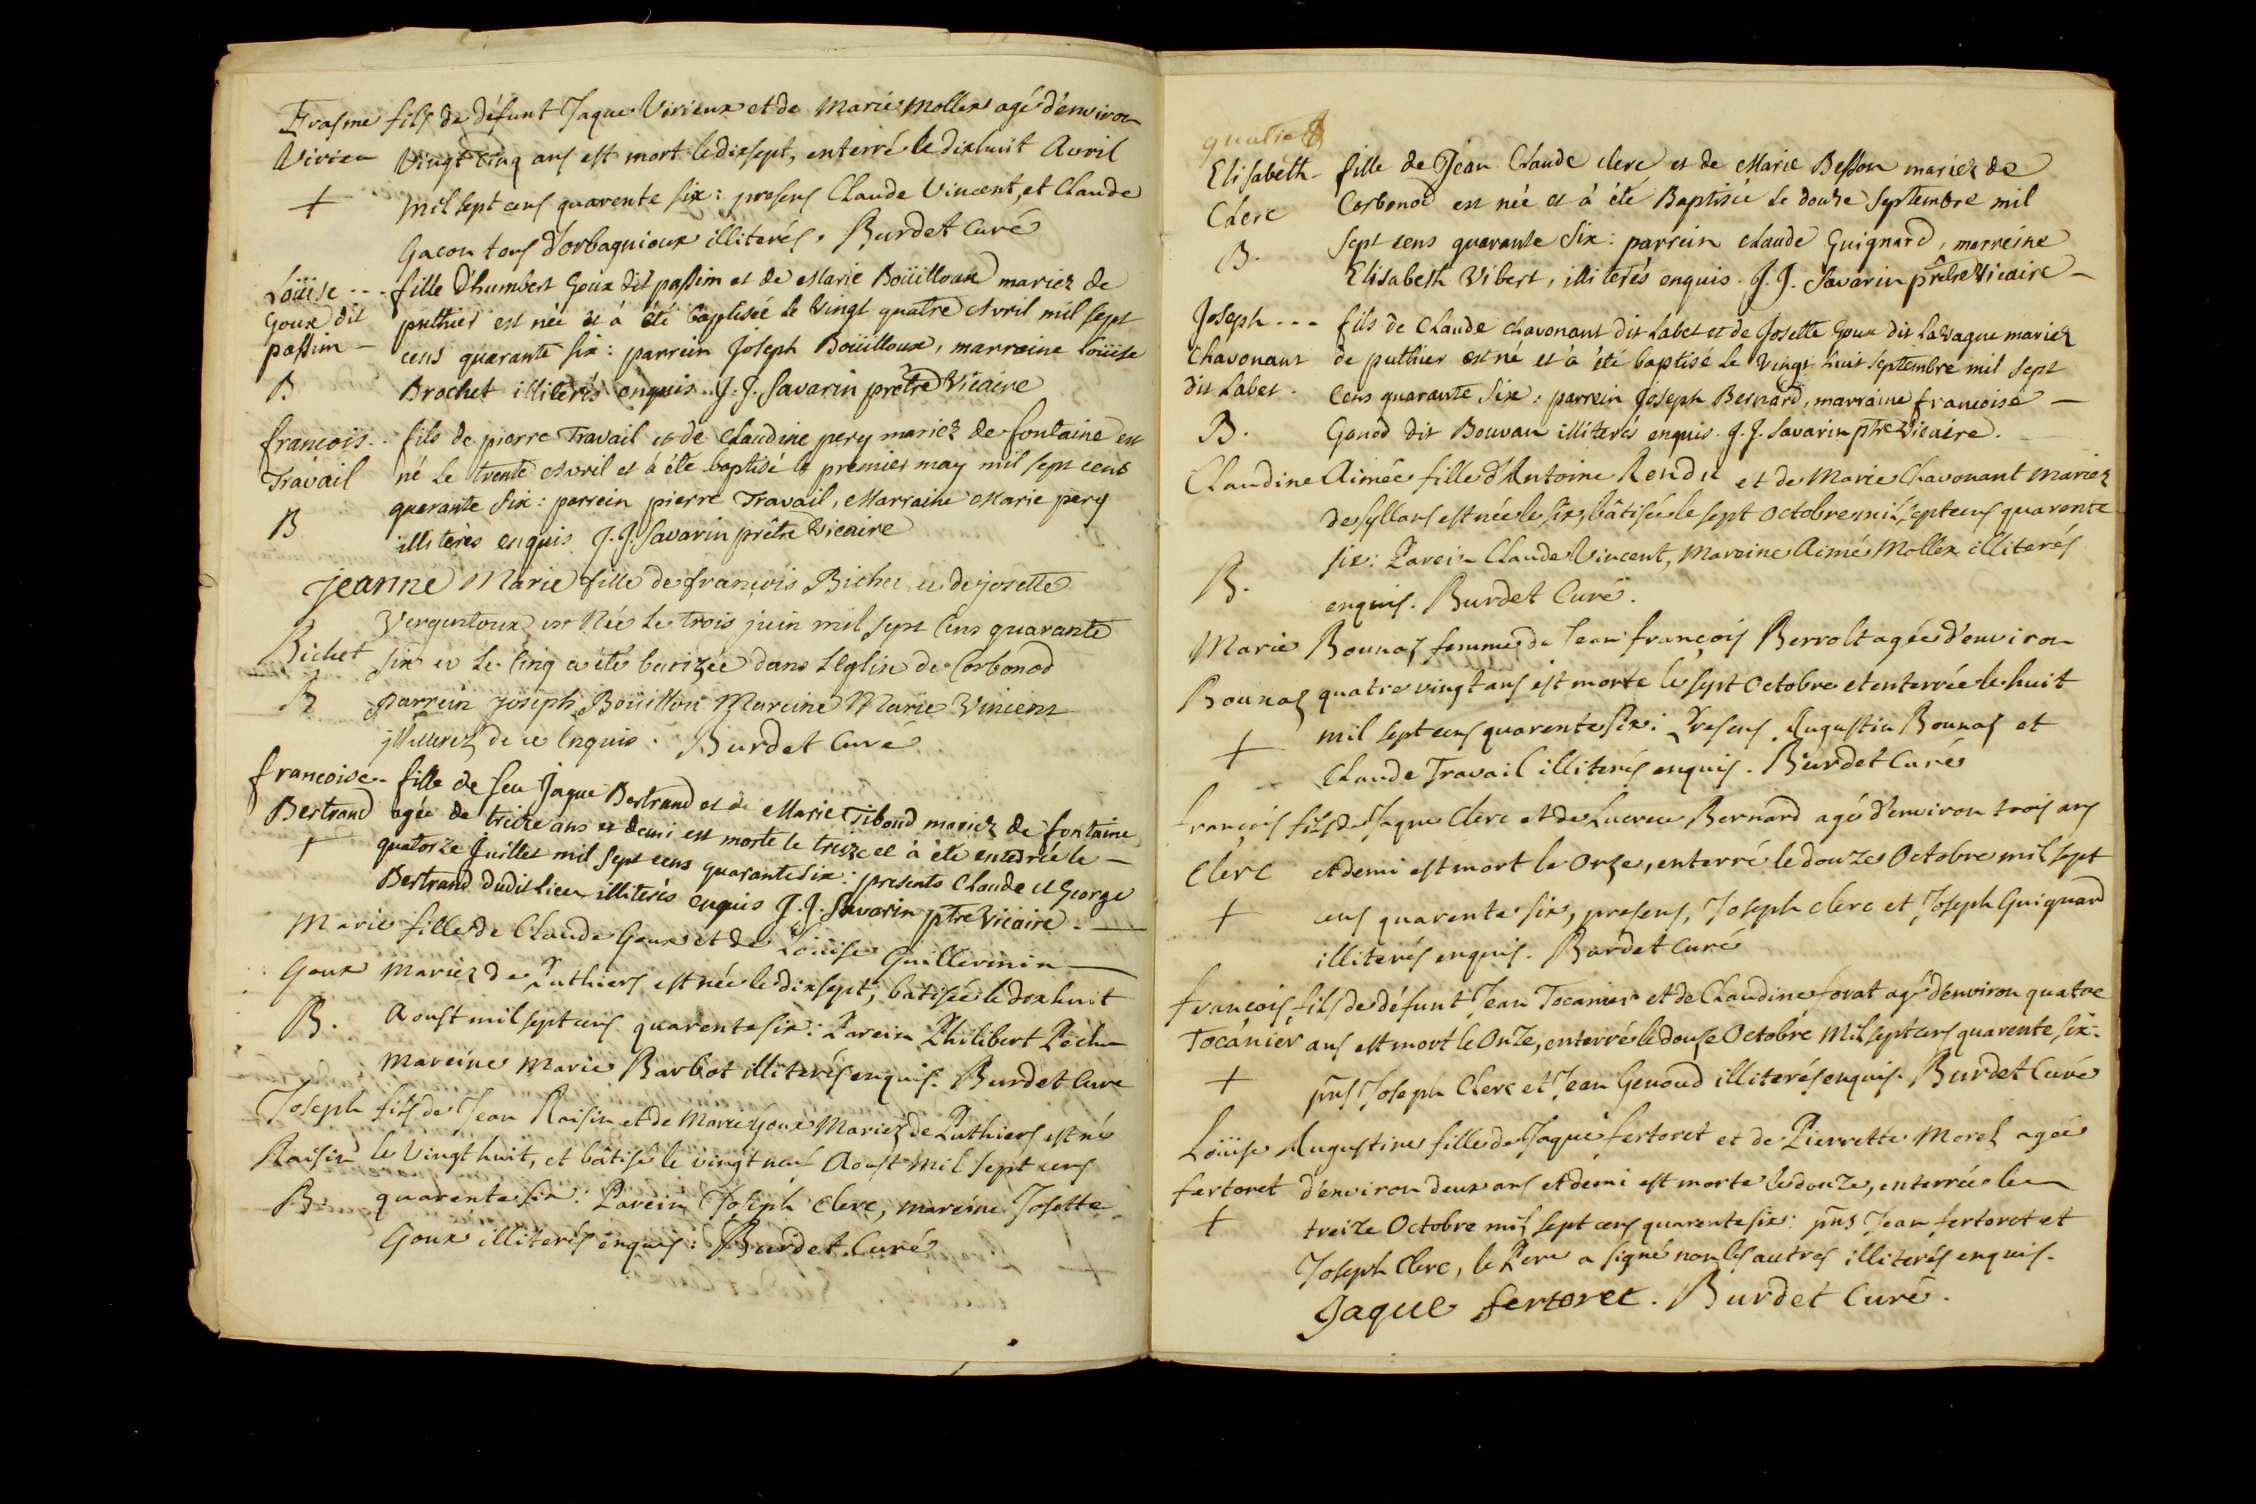 Erasme fils de défunt Jaque Virieux et de Marie Mollex agé d'environ
Virieu vingt cinq ans est mort le dixsept, enterré le dixhuit Avril
+ mil sept cens quarente six : presens Claude Vincent, et Claude
Gacon tous d'orbagnioux illiterés. Burdet Curé
Loüise --- fille d'humbert Goux dit passim et de Marie Boüilloux mariez de
Goux dit puthier est née et à été baptisée le vingt quatre Avril mil sept
passim - cens quarante six : parrein Joseph Boüilloux, marraine Loüise
B Brochet illiterés enquis. J. J. Savarin prêtre Vicaire
francois.. fils de pierre Travail et de Claudine pery mariez de fontaine est
Travail né le trente Avril et à été baptisé le premier may mil sept cens
B quarante six : parrein pierre Travail, Marraine Marie pery
illiterés enquis J. J. Savarin prêtre Vicaire
Jeanne Marie fille de françois Bichet et de josette
Vergentoux est Née le trois juin mil sept Cens quarante
Bichet six et le cinq a été batizée dans L'Eglise de Corbonod
B parrein joseph Boüillou Mareine Marie Vincent
illiterez de ce Enquis. Burdet Curé
francoise - fille de feu Jaque Bertrand et de Marie Tiboud mariez de fontaine
Bertrand agée de treize ans et demi est morte le treize et à été enterrée le -
+ quatorze Juillet mil sept cens quarante six : presents Claude et George
Bertrand dudit lieu illiterés enquis J. J. Savarin ptre Vicaire. -
Marie fille de Claude Goux et de Loüise Guillermin
Goux Mariez de Puthiers est née le dixsept, batisée le dixhuit
B. Aoust mil sept cens quarente six : Parein Philibert Pech
Mareine Marie Barbot illiterés enquis. Burdet Curé
Joseph fils de Jean Raisin et de Marie Goux Mariez de Puthiers est né
Raisin le vingt huit, et bâtisé le vingt neuf Aoust mil sept cens
B quarente six : Parein Joseph Clerc, mareine Josette
Goux illiterés enquis : Burdet Curé
quatre
Elisabeth - fille de Jean Claude Clerc et de Marie Besson mariez de
Clerc Corbonod est née et à été Baptisée le douze Septembre mil
B. sept cens quarante Six : parrein Claude Guignard, marreine
Elisabeth Vibert, illiterés enquis. J. J. Savarin prêtre Vicaire -
Joseph --- fils de Claude chavonant dit Labet et de Josette Goux dit Lavaque mariez
Chavonant de puthier est né et à été baptisé le Vingt huit Septembre mil sept
dit Labet. Cens quarante Six : parrein Joseph Bernard, marraine francoise -
B. Genod dit Bouvan illiterés enquis. J. J. Savarin ptre Vicaire.
Claudine Aimée fille d'Antoine Rendu et de Marie Chavonant Mariez
de syllans est née le six, bâtisée le sept Octobre mil sept cens quarente
B. six : Parein Claude Vincent, Mareine Aimé Mollex illiterés
enquis. Burdet Curé.
Marie Bounas femme de Jean françois Berrolt agée d'environ
Bounas quatre vingt ans est morte le sept Octobre et enterrée le huit
+ mil sept cens quarente six : Presens Augustin Bounas et
Claude Travail illiterés enquis. Burdet Curé
françois fils de Jaque Clerc et de Lucrece Bernard agé d'environ trois ans
Clerc et demi est mort le Onze, enterré le douze Octobre mil sept
+ cens quarente six, presens, Joseph Clerc et Joseph Guignard
illiterés enquis. Burdet Curé
françois fils de défunt Jean Tocanier et de Claudine forat agé d'environ quatre
Tocánier ans est mort le Onze, enterré le douze Octobre Mil sept cens quarente six :
+ pns Joseph Clerc et Jean Genoud illiterés enquis. Burdet Curé
Loüise Augustine fille de Jaque fertoret et de Pierrette Morel agée
fertoret d'environ deux ans et demi est morte le douze, enterrée le
+ treize Octobre mil sept cens quarente six : pns Jean fertoret et
Joseph Clerc, le Pere a signé non les autres illiterés enquis.
Jaque fertoret. Burdet Curé.